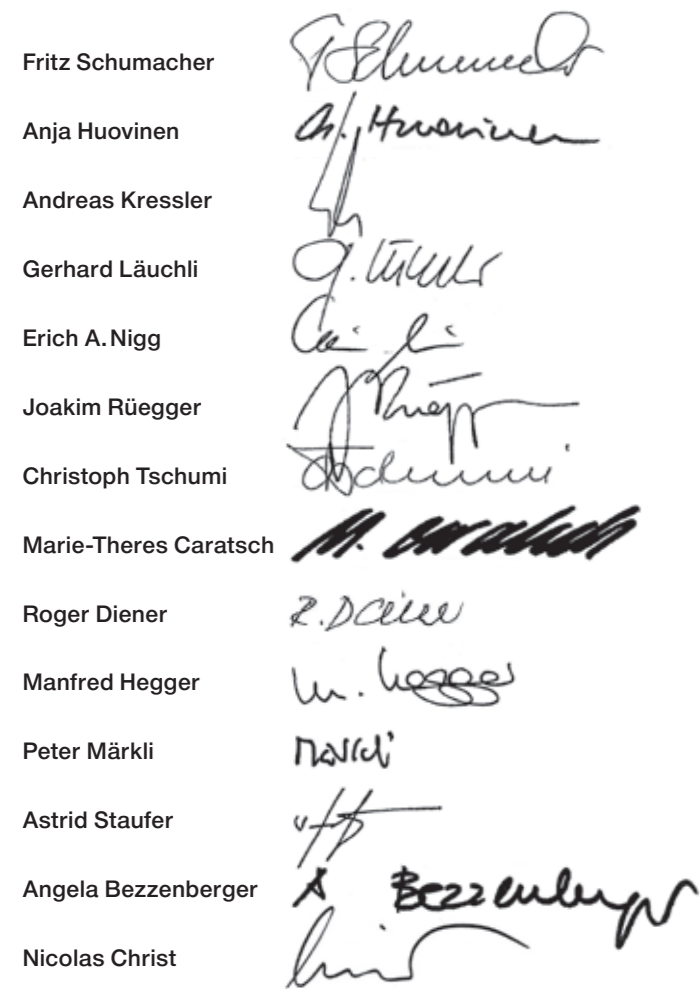 Fritz Schumacher F Schumacher
Anja Huovinen A. Huovinen
Andreas Kressler
Gerhard Läuchli G.
Erich A. Nigg
Joakim Rüegger J Rüegger
Christoph Tschumi Tschumi
Marie-Theres Caratsch M. Caratsch
Roger Diener R. Diener
Manfred Hegger M. Hegger
Peter Märkli Märkli
Astrid Staufer
Angela Bezzenberger A Bezzenberger
Nicolas Christ